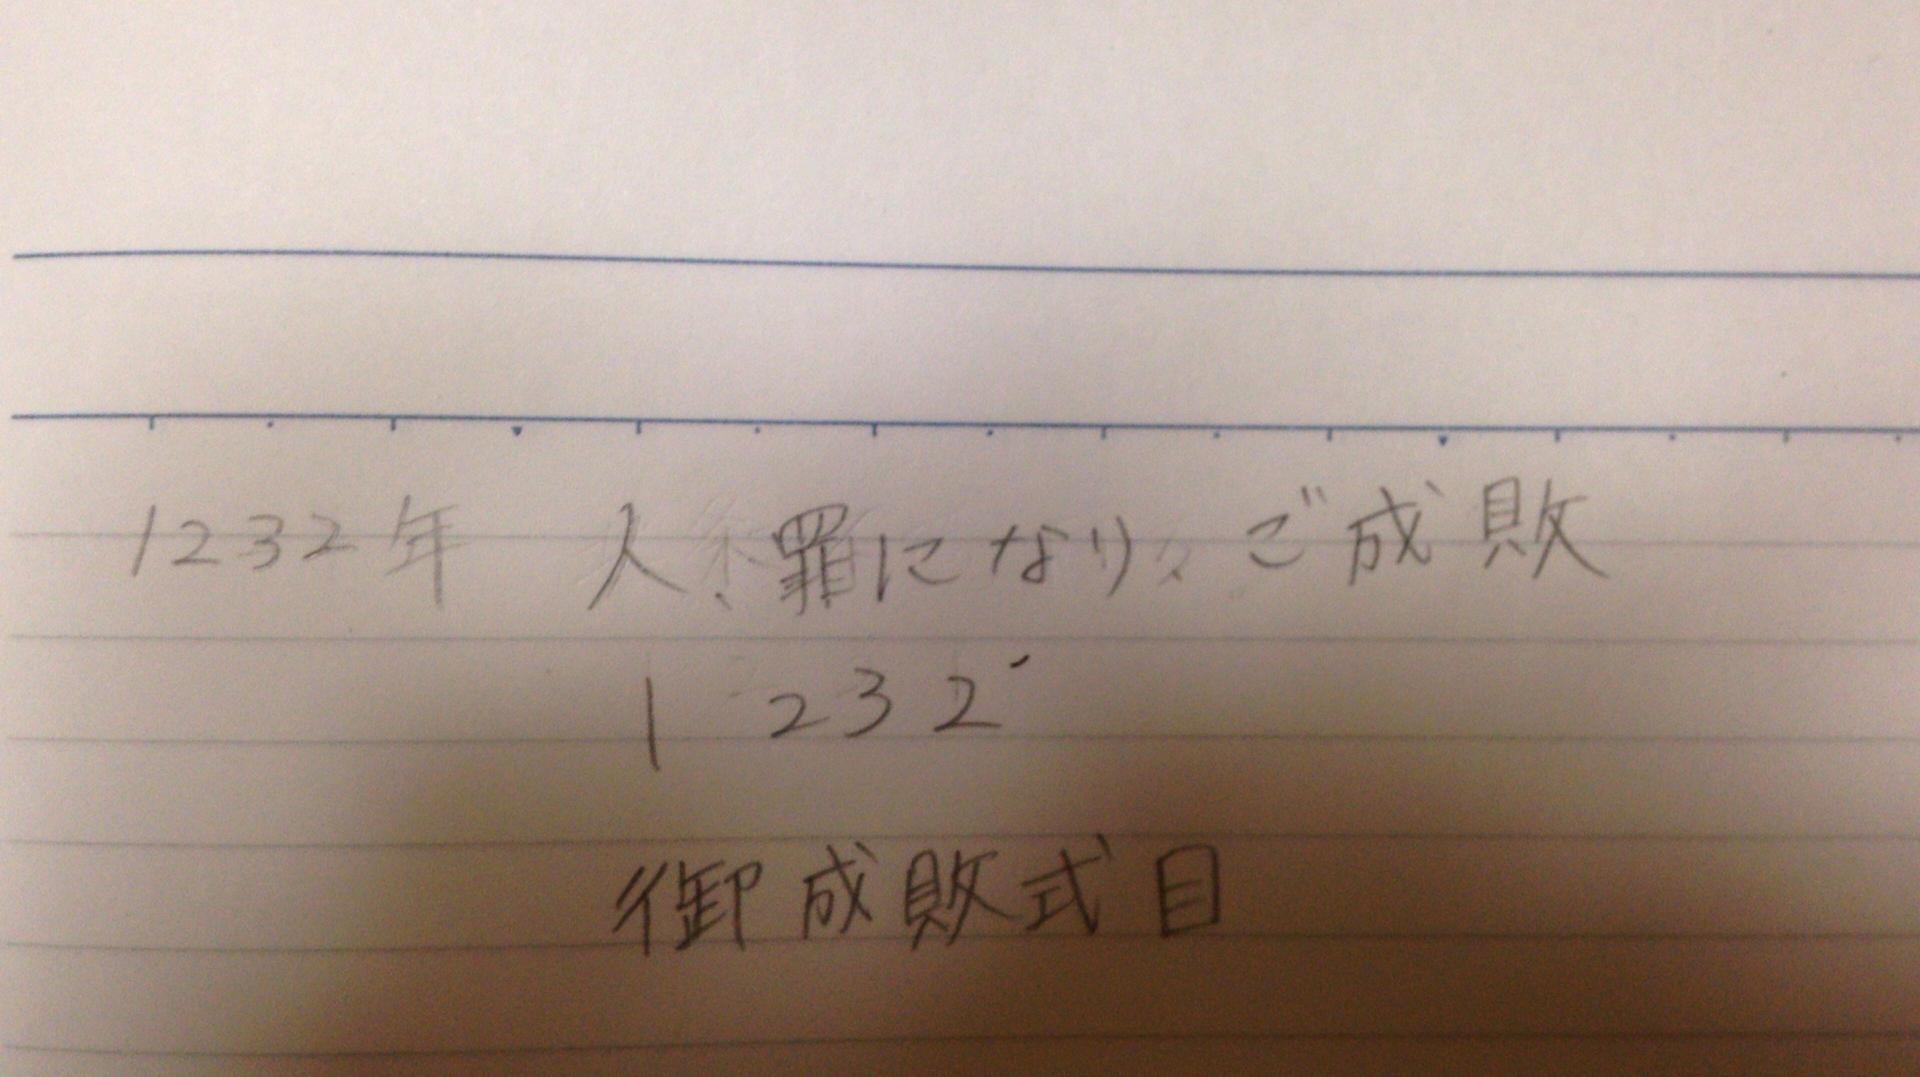 1232年 人、罪になり、ご成敗
1 232
御成敗式目